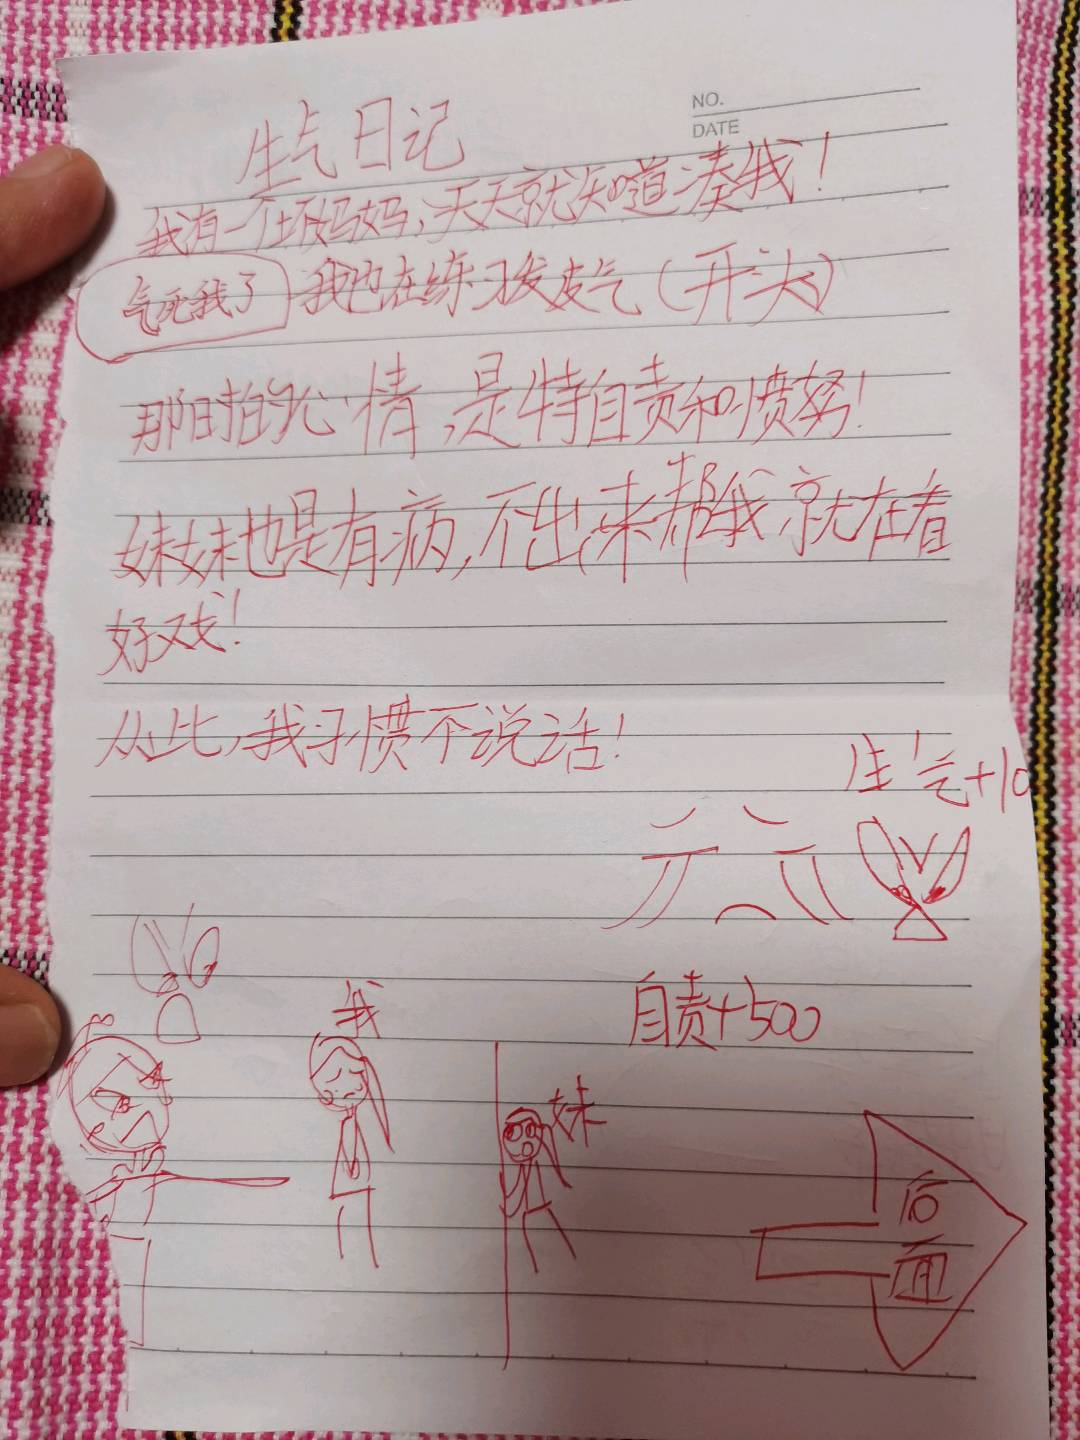 NO.
DATE
生气日记
我有一个坏妈妈,天天就知道凑我!
气死我了 我也在练习发皮气(开头)
那时的心情,是特自责和愤努!
妹妹也是有病,不出来帮我,就在看
好戏!
从此,我习惯不说话!
生气+10
自责+500
我
妹
后
面